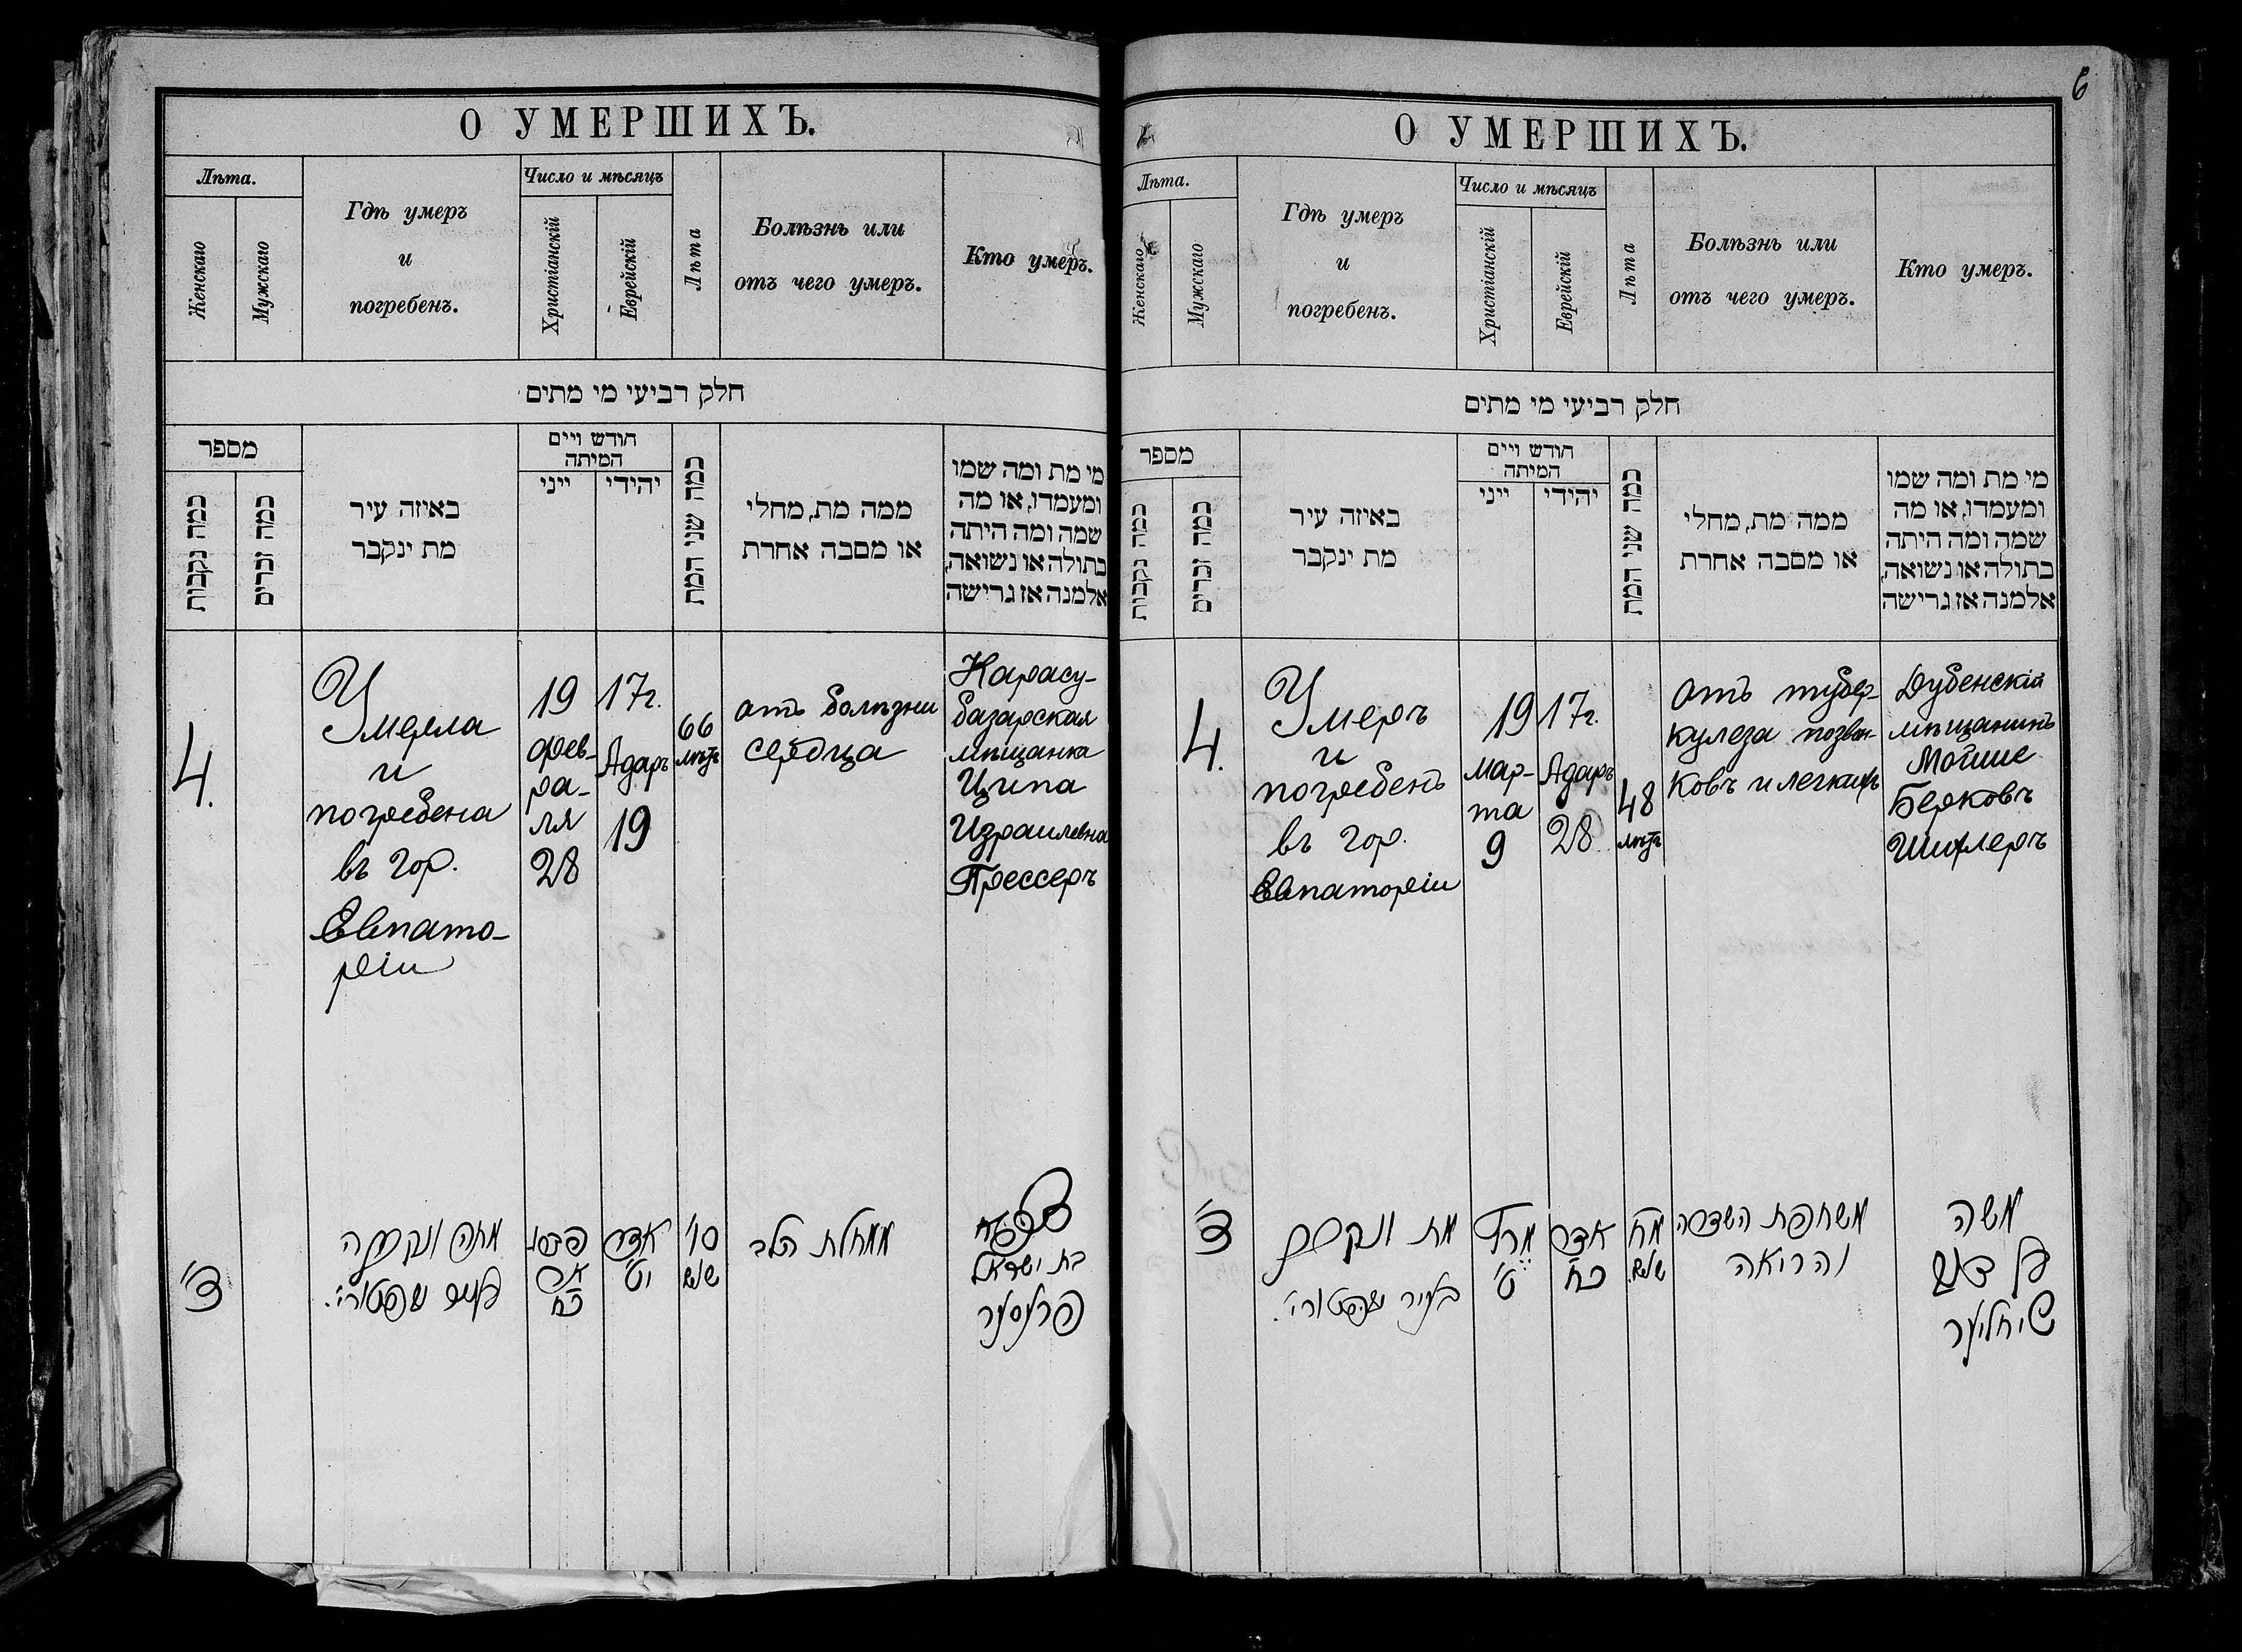 О УМЕРШИХЪ.
Лѣта.
Женскаго
Мужскаго
Гдѣ умеръ
и
погребенъ.
Число и мѣсяцъ
Христіанскій
Еврейскій
Лѣта
Болѣзнь или
отъ чего умеръ.
Кто умеръ.
חלק רביעי מי מתים
מספר
כמה נקבות
כמה זכרים
באיזה עיר
מת ינקבר
חודש ויים
המיתה
ייני
יהידי
כמה שני המת
ממה מת, מחלי
או מסבה אחרת
מי מת ומה שמו
ומעמדו, או מה
שמה ומה היתה
בתולה או נשואה,
אלמנה אז גרישה
4.
Умерла
и
погребена
въ гор.
Евпато-
ріи
19
фев-
ра-
ля
28
17г.
Адаръ
19
66
лѣтъ
отъ болѣзни
сердца
Карасу-
базарская
мѣщанка
Ципа
Израилевна
Прессеръ
ד'
מתה ונקברה
אדר
י"ט
ס"ו
שנים
ממחלת הלב
בת ישראל
פרעסער
6
О УМЕРШИХЪ.
Лѣта.
Женскаго
Мужскаго
Гдѣ умеръ
и
погребенъ.
Число и мѣсяцъ
Христіанскій
Еврейскій
Лѣта
Болѣзнь или
отъ чего умеръ.
Кто умеръ.
חלק רביעי מי מתים
מספר
כמה נקבות
כמה זכרים
באיזה עיר
מת ינקבר
חודש ויים
המיתה
ייני
יהידי
כמה שני המת
ממה מת, מחלי
או מסבה אחרת
מי מת ומה שמו
ומעמדו, או מה
שמה ומה היתה
בתולה או נשואה,
אלמנה אז גרישה
4.
Умеръ
и
погребенъ
въ гор.
Евпаторіи
19
мар-
та
9
17г.
Адаръ
28
48
лѣтъ
отъ тубер-
кулеза позвон-
ковъ и легкихъ
Дубенскій
мѣщанинъ
Мойше
Берковъ
Шихлеръ
ד'
מת ונקבר
בעיר
מרץ
ט'
אדר
כ"ח
מ"ח
שנים
משחפת השדרה
והריאה
משה
שיחליער